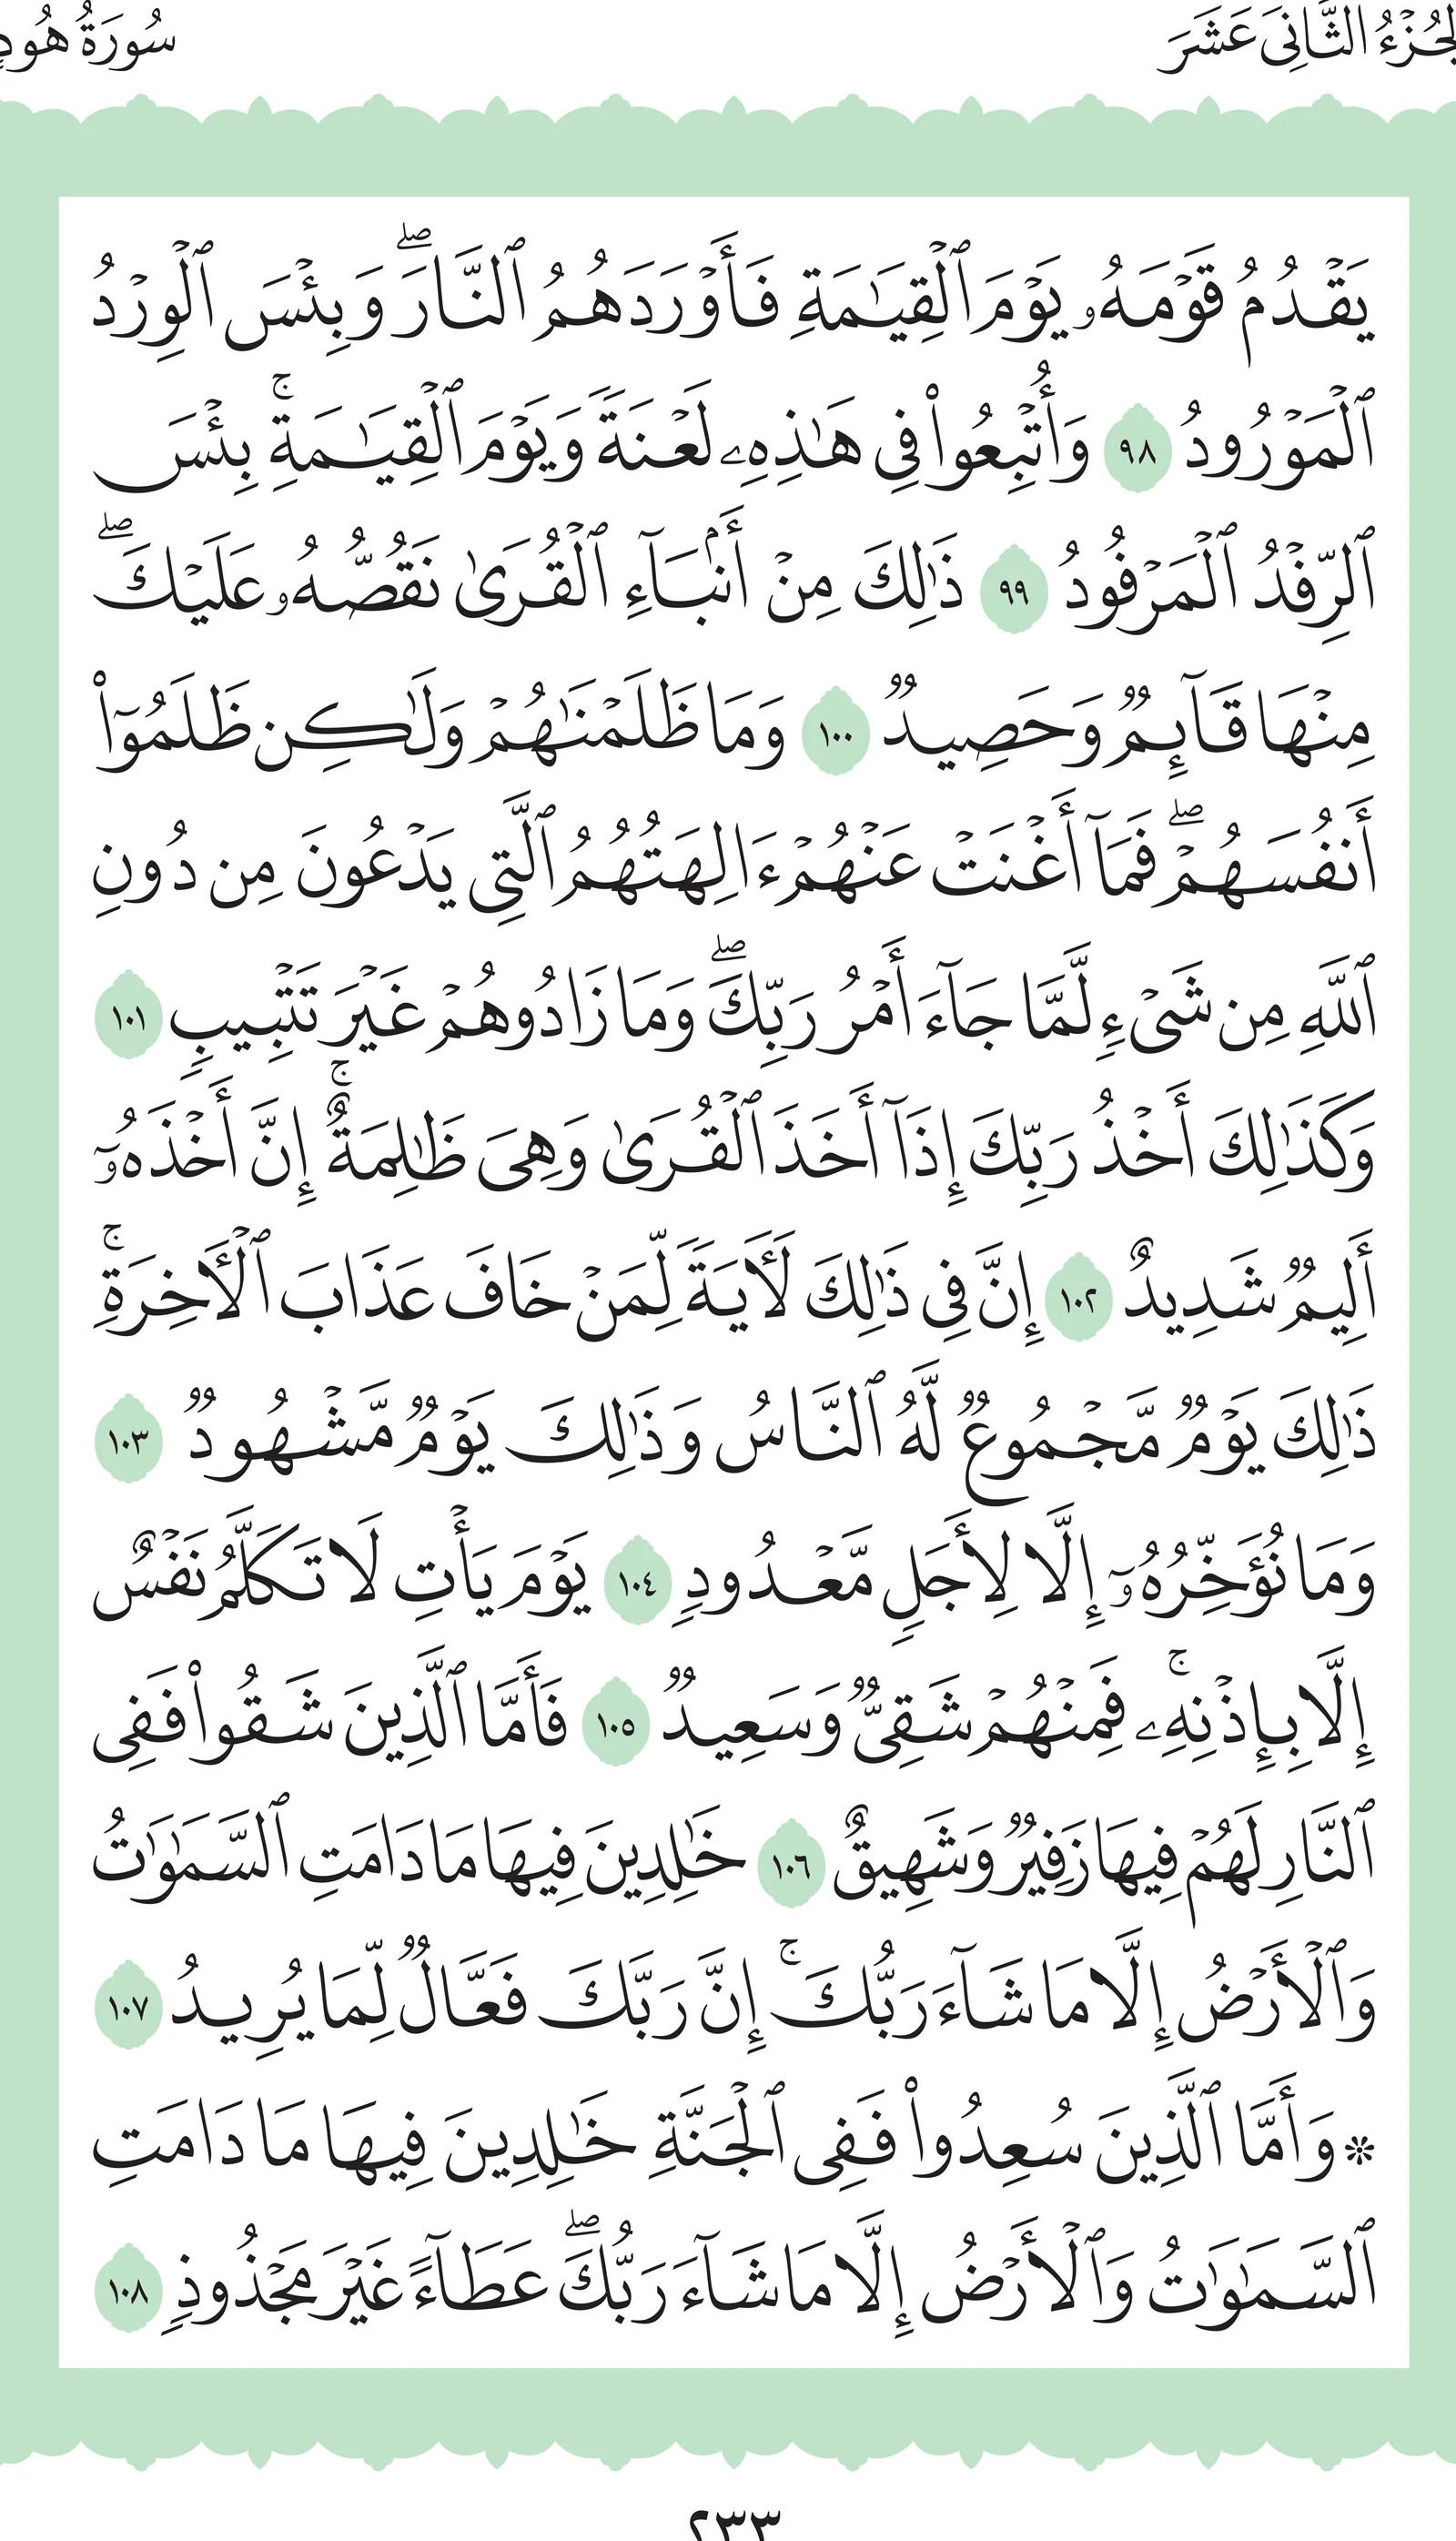 الجُزْءُ الثَّانِيَ عَشَرَ
سُورَةُ هُودٍ
يَقۡدُمُ قَوۡمَهُۥ يَوۡمَ ٱلۡقِيَٰمَةِ فَأَوۡرَدَهُمُ ٱلنَّارَۖ وَبِئۡسَ ٱلۡوِرۡدُ
ٱلۡمَوۡرُودُ ٩٨ وَأُتۡبِعُواْ فِي هَٰذِهِۦ لَعۡنَةٗ وَيَوۡمَ ٱلۡقِيَٰمَةِۚ بِئۡسَ
ٱلرِّفۡدُ ٱلۡمَرۡفُودُ ٩٩ ذَٰلِكَ مِنۡ أَنۢبَآءِ ٱلۡقُرَىٰ نَقُصُّهُۥ عَلَيۡكَۖ
مِنۡهَا قَآئِمٞ وَحَصِيدٞ ١٠٠ وَمَا ظَلَمۡنَٰهُمۡ وَلَٰكِن ظَلَمُوٓاْ
أَنفُسَهُمۡۖ فَمَآ أَغۡنَتۡ عَنۡهُمۡ ءَالِهَتُهُمُ ٱلَّتِي يَدۡعُونَ مِن دُونِ
ٱللَّهِ مِن شَيۡءٖ لَّمَّا جَآءَ أَمۡرُ رَبِّكَۖ وَمَا زَادُوهُمۡ غَيۡرَ تَتۡبِيبٖ ١٠١
وَكَذَٰلِكَ أَخۡذُ رَبِّكَ إِذَآ أَخَذَ ٱلۡقُرَىٰ وَهِيَ ظَٰلِمَةٌۚ إِنَّ أَخۡذَهُۥٓ
أَلِيمٞ شَدِيدٌ ١٠٢ إِنَّ فِي ذَٰلِكَ لَأٓيَةٗ لِّمَنۡ خَافَ عَذَابَ ٱلۡأٓخِرَةِۚ
ذَٰلِكَ يَوۡمٞ مَّجۡمُوعٞ لَّهُ ٱلنَّاسُ وَذَٰلِكَ يَوۡمٞ مَّشۡهُودٞ ١٠٣
وَمَا نُؤَخِّرُهُۥٓ إِلَّا لِأَجَلٖ مَّعۡدُودٖ ١٠٤ يَوۡمَ يَأۡتِ لَا تَكَلَّمُ نَفۡسٌ
إِلَّا بِإِذۡنِهِۦۚ فَمِنۡهُمۡ شَقِيّٞ وَسَعِيدٞ ١٠٥ فَأَمَّا ٱلَّذِينَ شَقُواْ فَفِي
ٱلنَّارِ لَهُمۡ فِيهَا زَفِيرٞ وَشَهِيقٌ ١٠٦ خَٰلِدِينَ فِيهَا مَا دَامَتِ ٱلسَّمَٰوَٰتُ
وَٱلۡأَرۡضُ إِلَّا مَا شَآءَ رَبُّكَۚ إِنَّ رَبَّكَ فَعَّالٞ لِّمَا يُرِيدُ ١٠٧
۞ وَأَمَّا ٱلَّذِينَ سُعِدُواْ فَفِي ٱلۡجَنَّةِ خَٰلِدِينَ فِيهَا مَا دَامَتِ
ٱلسَّمَٰوَٰتُ وَٱلۡأَرۡضُ إِلَّا مَا شَآءَ رَبُّكَۖ عَطَآءً غَيۡرَ مَجۡذُوذٖ ١٠٨
٢٣٣